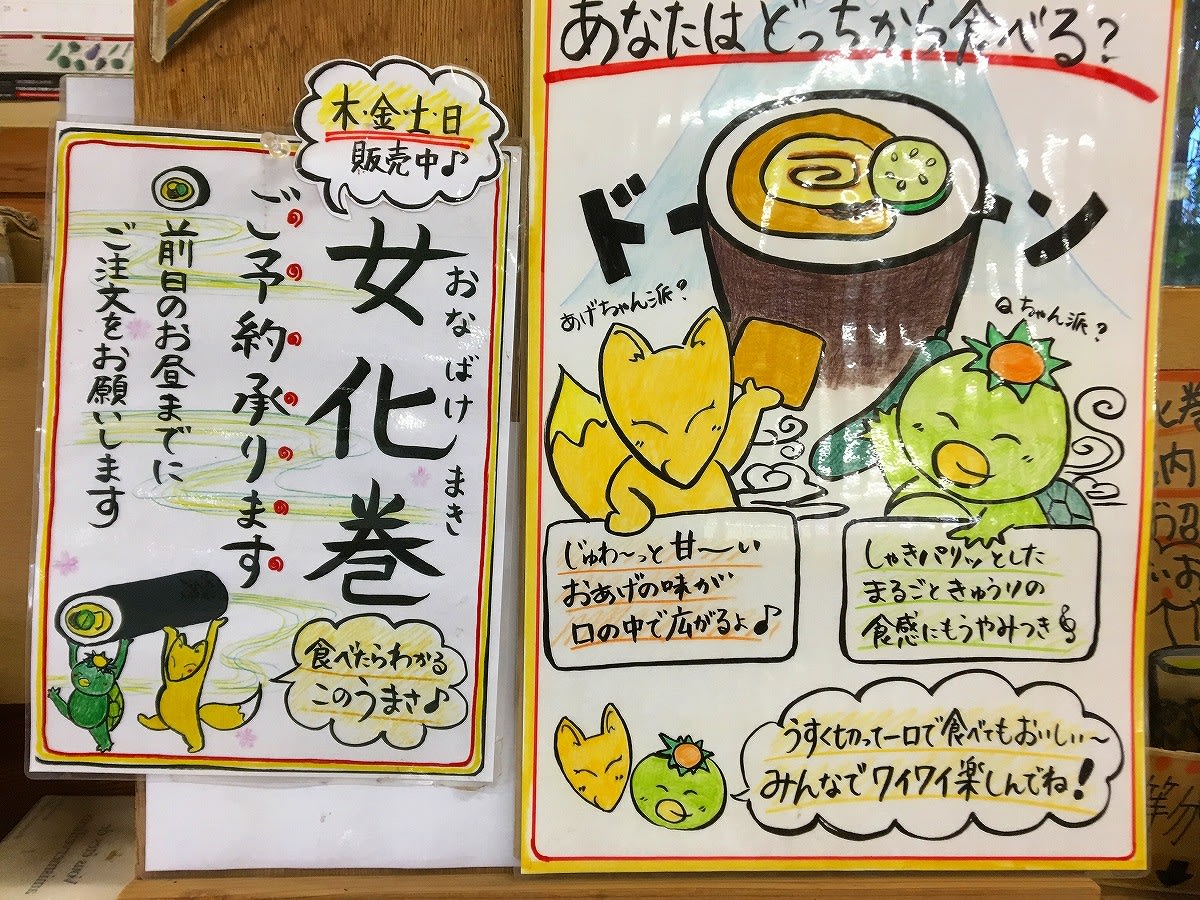 木・金・土・日
販売中♪
女化巻
おなばけまき
ご予約承ります
前日のお昼までに
ご注文をお願いします
食べたらわかる
このうまさ♪
あなたはどっちから食べる？
ドーン
あげちゃん派？
Qちゃん派？
じゅわ〜っと甘〜い
おあげの味が
口の中で広がるよ♪
しゃきパリッとした
まるごときゅうりの
食感にもうやみつき
うすく切って一口で食べてもおいしい〜
みんなでワイワイ楽しんでね！